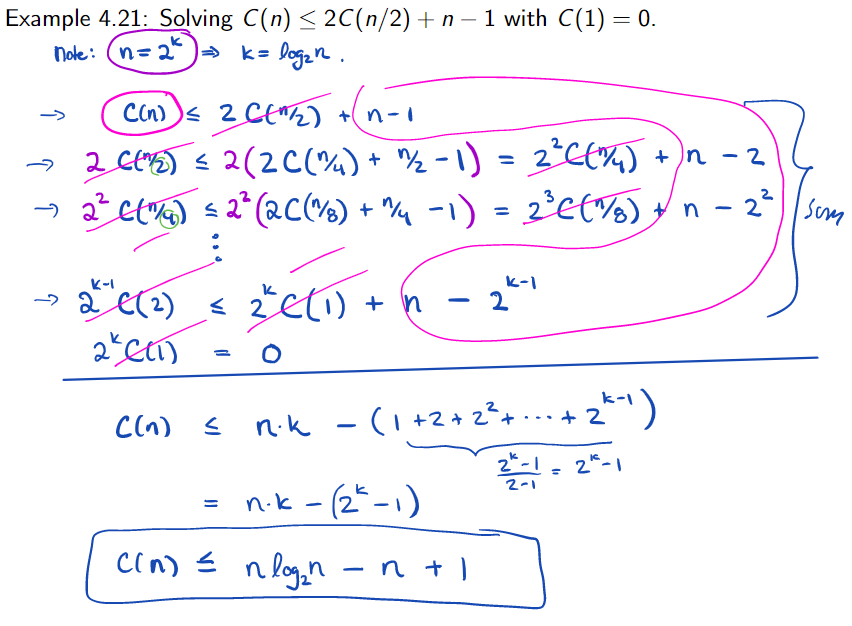 Example 4.21: Solving C(n) ≤ 2C(n/2) + n − 1 with C(1) = 0.
Note: n = 2^k ⇒ k = log₂n .
→ C(n) ≤ 2 C(n/2) + n − 1
→ 2 C(n/2) ≤ 2(2C(n/4) + n/2 − 1) = 2²C(n/4) + n − 2
→ 2² C(n/4) ≤ 2²(2C(n/8) + n/4 − 1) = 2³C(n/8) + n − 2²
sum
⋮
→ 2^(k−1) C(2) ≤ 2^k C(1) + n − 2^(k−1)
2^k C(1) = 0
C(n) ≤ n·k − (1 + 2 + 2² + ··· + 2^(k−1))
(2^k − 1)/(2 − 1) = 2^k − 1
= n·k − (2^k − 1)
C(n) ≤ n log₂n − n + 1